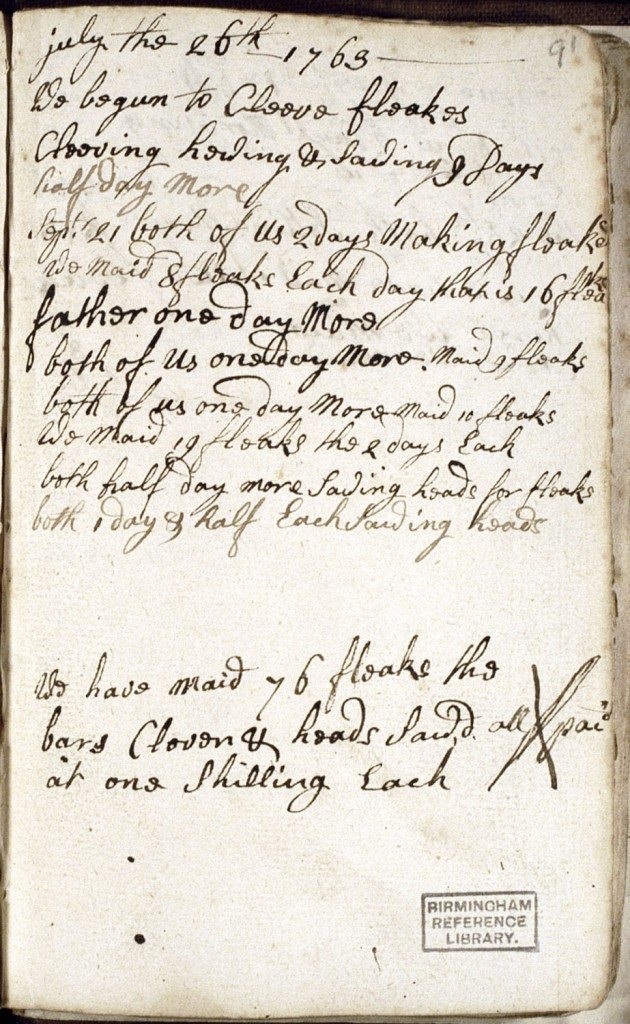 91
july the 26th 1763
We begun to Cleeve fleakes
Cleeving hewing & Sawing 9 Days
half day More
Sept: 21 both of us 2 days Making fleaks
We Maid 8 fleaks Each day that is 16 fleaks
father one day More
both of us one day More. Maid 9 fleaks
both of us one day More Maid 10 fleaks
We Maid 19 fleaks the 2 days Each
both half day more Sawing heads for fleaks
both 1 day & half Each Sawing heads
We have maid 76 fleaks the
bars Cloven & heads Saw,d all paid
at one Shilling Each
BIRMINGHAM
REFERENCE
LIBRARY.